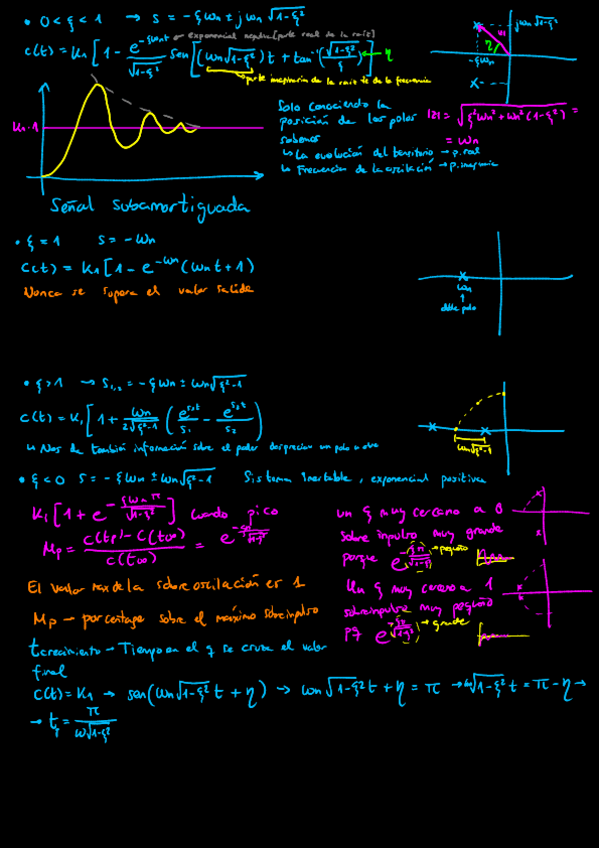 • 0 < ξ < 1 → s = -ξωn ± jωn √1-ξ²
exponencial negativa [parte real de la raiz]
c(t) = K1 [1 - e^-ξωnt / √1-ξ² sen[(ωn√1-ξ²)t + tan⁻¹(√1-ξ² / ξ)]] ← η
parte imaginaria de la raiz de la frecuencia
jωn√1-ξ²
ωn
η
-ξωn
K1·1
Solo conociendo la
posición de los polos
sabemos
↳ La evolución del transitorio → p. real
↳ Frecuencia de la oscilación → p. imaginaria
|z| = √ξ²ωn² + ωn²(1-ξ²) =
= ωn
Señal subamortiguada
• ξ = 1 s = -ωn
c(t) = K1 [1 - e^-ωn (ωnt + 1)
Nunca se supera el valor salida
ωn
↑
doble polo
• ξ > 1 → s1,2 = -ξωn ± ωn√ξ²-1
c(t) = K1 [1 + ωn / 2√ξ²-1 (e^s1t / s1 - e^s2t / s2)
↳ Nos da también información sobre el poder despreciar un polo u otro
ωn√ξ²-1
• ξ < 0 s = -ξωn ± ωn√ξ²-1 Sistema inestable, exponencial positiva
K1 [1 + e^-ξωnπ / √1-ξ²] cuando pico
Mp = c(tp) - c(t∞) / c(t∞) = e^-ξπ / √1-ξ²
un ξ muy cercano a 0
sobre impulso muy grande
porque e^-ξπ / √1-ξ² → pequeño
Un ξ muy cercano a 1
sobreimpulso muy pequeño
pq e^-ξπ / √1-ξ² → grande
El valor max de la sobreoscilación es 1
Mp → porcentaje sobre el máximo sobreimpulso
tcrecimiento → Tiempo en el q se cruza el valor
final
c(t) = K1 → sen(ωn√1-ξ² t + η) → ωn√1-ξ² t + η = π → ωn√1-ξ² t = π - η →
→ t = π / ω√1-ξ²